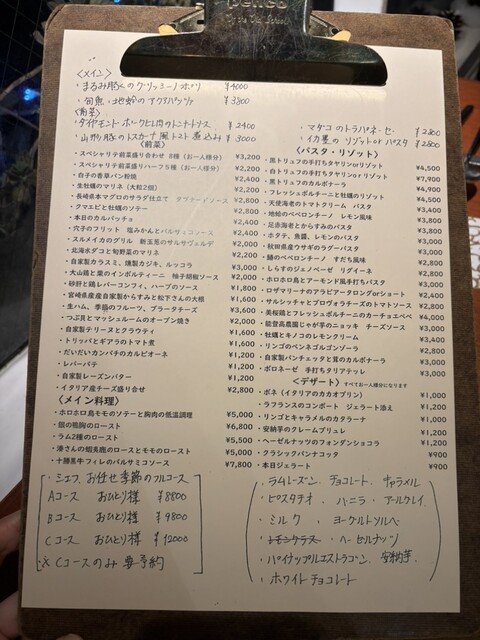 penco
〈メイン〉
・まるみ豚のグリッシーノ ポルチ ¥4000
・旬魚・地蛤のアクアパッツァ ¥3,800
〈前菜〉
・ダイヤモンドポークヒレ肉のトンナートソース ¥2400
・山形豚のトスカーナ風トマト煮込み ¥3000
〈前菜〉
・スペシャリテ前菜盛り合わせ 8種（お一人様分） ¥3,200
・スペシャリテ前菜盛りハーフ5種（お一人様分） ¥2,200
・白子の香草パン粉焼 ¥2,400
・生牡蠣のマリネ（大粒2個） ¥2,200
・長崎県本マグロのサラダ仕立て タプナードソース ¥2,800
・クマエビと牡蠣のソテー ¥2,800
・本日のカルパッチョ ¥2,400
・穴子のフリット 塩みかんとバルサミコソース ¥2,400
・スルメイカのグリル 新玉葱のサルサヴェルデ ¥2,000
・北海ダコと旬野菜のマリネ ¥2,000
・自家製カラスミ、燻製カジキ、ルッコラ ¥3,000
・大山鶏と栗のインボルティーニ 柚子胡椒ソース ¥2,000
・砂肝と鶏レバーコンフィ、ハーブのソース ¥1,800
・宮崎県産産自家製からすみと松下さんの大根 ¥1,600
・生ハム、季節のフルーツ、ブラータチーズ ¥3,600
・つぶ貝とマッシュルームのオーブン焼き ¥2,000
・自家製テリーヌとクラウティ ¥1,600
・トリッパとギアラのトマト煮 ¥1,600
・だいだいカンパチのカルピオーネ ¥1,200
・レバーパテ ¥1,200
・自家製レーズンバター ¥1,200
・イタリア産チーズ盛り合せ ¥2,800
〈メイン料理〉
・ホロホロ鳥モモのソテーと胸肉の低温調理 ¥5,000
・鴨胸のロースト ¥6,800
・ラム2種のロースト ¥5,500
・湊さんの蝦夷鹿のロースとモモのロースト ¥5,500
・十勝黒牛フィレのバルサミコソース ¥7,800
・シェフ、お任せ季節のフルコース
Aコース おひとり様 ¥8800
Bコース おひとり様 ¥9800
Cコース おひとり様 ¥12000
※Cコースのみ要予約
・マダコのトラパネーゼ ¥2800
・イカ墨のリゾットorパスタ ¥2800
〈パスタ・リゾット〉
・黒トリュフの手打ちタヤリンorリゾット ¥4,500
・白トリュフの手打ちタヤリンorリゾット ¥7,900
・黒トリュフのカルボナーラ ¥4,900
・フレッシュポルチーニと牡蠣のリゾット ¥4,500
・天使海老のトマトクリーム パスタ ¥3,400
・地蛤のペペロンチーノ レモン風味 ¥3,800
・足赤海老とからすみのパスタ ¥3,400
・ホタテ、魚醤、レモンのパスタ ¥3,000
・秋田県産ウサギのラグーパスタ ¥3,000
・鯒のペペロンチーノ すだち風味 ¥2,800
・しらすのジェノベーゼ リグイーネ ¥2,800
・ホロホロ鳥とアーモンド風味手打ちパスタ ¥3,000
・ロザマリーナのアラビアータロングorショート ¥2,400
・サルシッチャとプロヴォラチーズのトマトソース ¥2,800
・美桜鶏とフレッシュポルチーニのカーチョエペペ ¥4,000
・能登島農園じゃが芋のニョッキ チーズソース ¥3,000
・牡蠣とキノコのレモンクリーム ¥3,400
・リンゴのペンネゴルゴンゾーラ ¥2,800
・自家製パンチェッタと茸のカルボナーラ ¥3,000
・ボロネーゼ 手打ちタリアテッレ ¥3,000
〈デザート〉 すべてお一人様分になります
・ボネ（イタリアのカカオプリン） ¥1,000
・ラフランスのコンポート ジェラート添え ¥1,200
・リンゴとキャラメルのカタラーナ ¥1,000
・安納芋のクレームブリュレ ¥1,200
・ヘーゼルナッツのフォンダンショコラ ¥1,200
・クラシックパンナコッタ ¥900
・本日ジェラート ¥900
・ラムレーズン チョコレート キャラメル
・ピスタチオ ・バニラ ・アールグレイ
・ミルク ・ヨーグルトソルベ
・レモングラス ・ヘーゼルナッツ
・パイナップルエストラゴン、安納芋
・ホワイトチョコレート